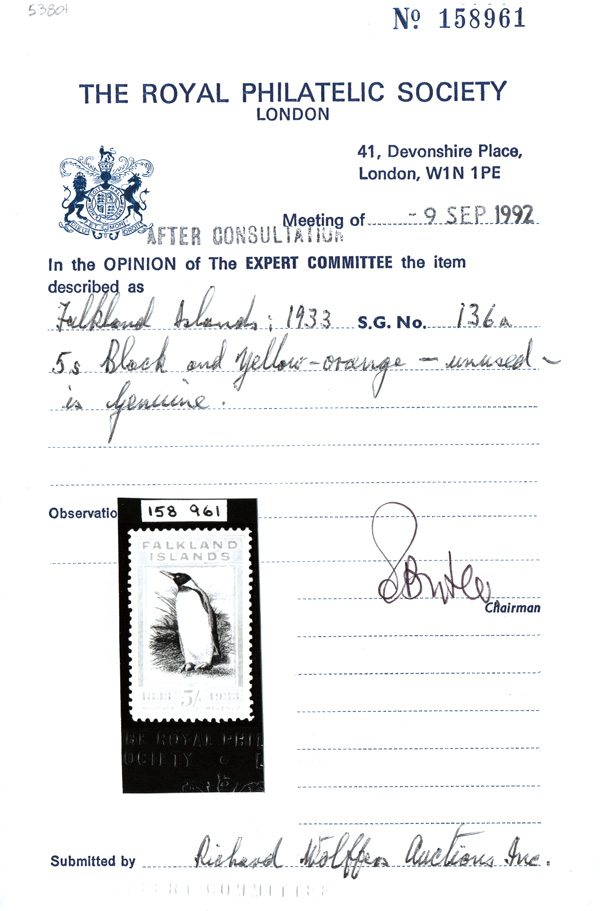 53801
No 158961
THE ROYAL PHILATELIC SOCIETY
LONDON
41, Devonshire Place,
London, W1N 1PE
Meeting of - 9 SEP 1992
AFTER CONSULTATION
In the OPINION of The EXPERT COMMITTEE the item
described as
Falkland Islands; 1933 S.G. No. 136a
5s Black and Yellow-orange - unused -
is genuine.
Observatio
158 961
FALKLAND
ISLANDS
1833 5/- 1933
Chairman
HE ROYAL PHIL
OCIETY
Submitted by Richard Wolffers Auctions Inc.
ERT COMMITTEE